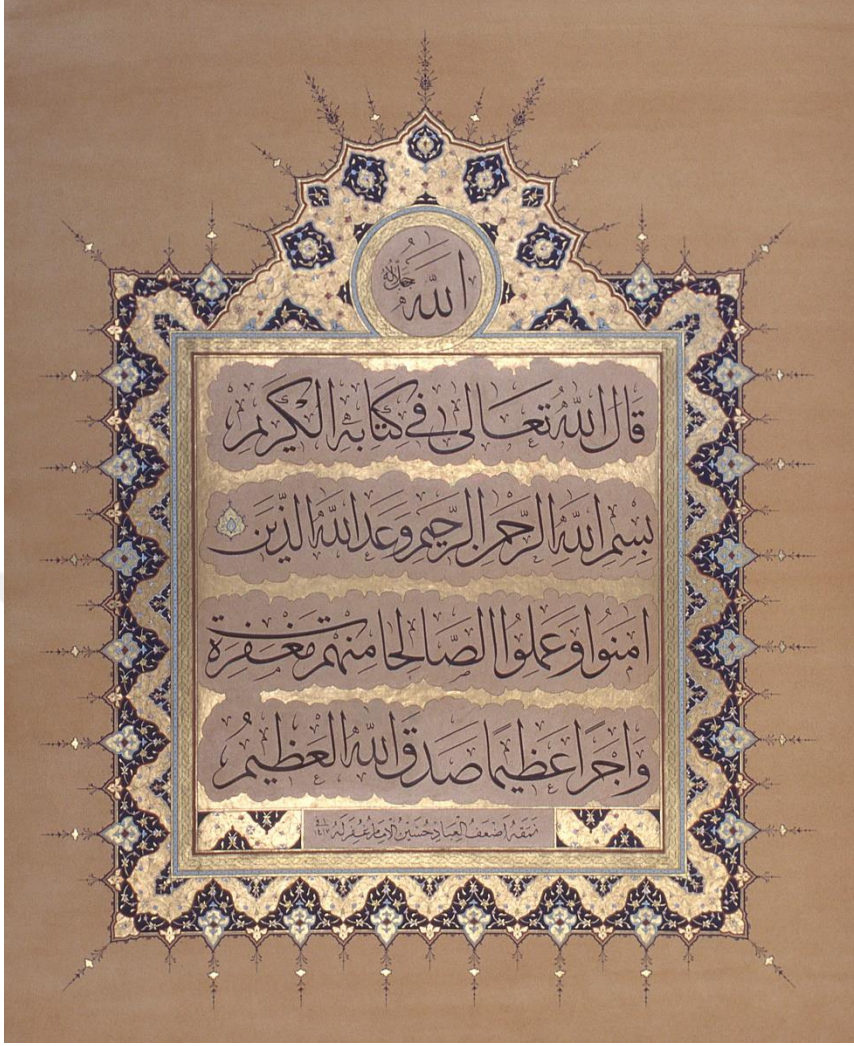 الله جل جلاله
قَالَ اللهُ تَعَالى في كتَابِهِ الكَريمِ
بِسْمِ اللهِ الرَّحْمنِ الرَّحيمِ وَعَدَ اللهُ الذَّينَ
امَنُوا وَعَمِلُوا الصَّالحَاتِ مِنْهُمْ مَغْفِرَةً
وَاَجْرًا عَظيمًا صَدَقَ اللهُ العَظيمُ
نمَقَهُ اَضْعَفُ العِبَادِ حُسَيْنُ الاِمَامُ غُفِرَ لَهُ